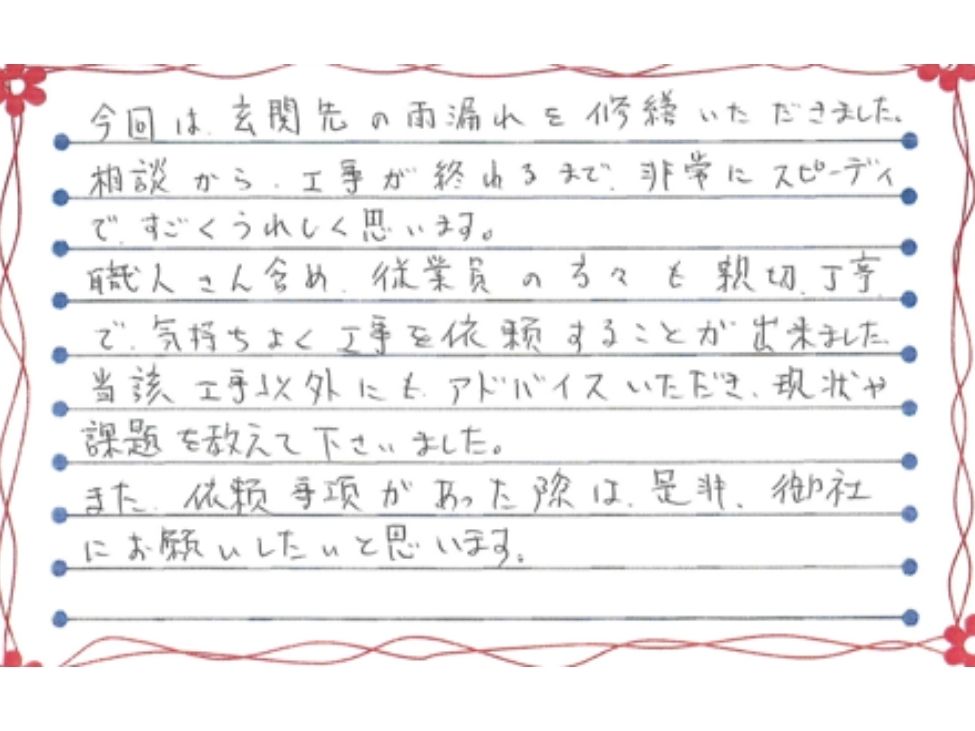 今回は、玄関先の雨漏れを修繕いただきました。
相談から、工事が終れるまで、非常にスピーディ
で、すごくうれしく思います。
職人さん含め、従業員の方々も親切、丁寧
で、気持ちよく工事を依頼することが出来ました。
当該工事以外にも、アドバイスいただき、現状や
課題を教えて下さいました。
また、依頼事項があった際は、是非、御社
にお願いしたいと思います。